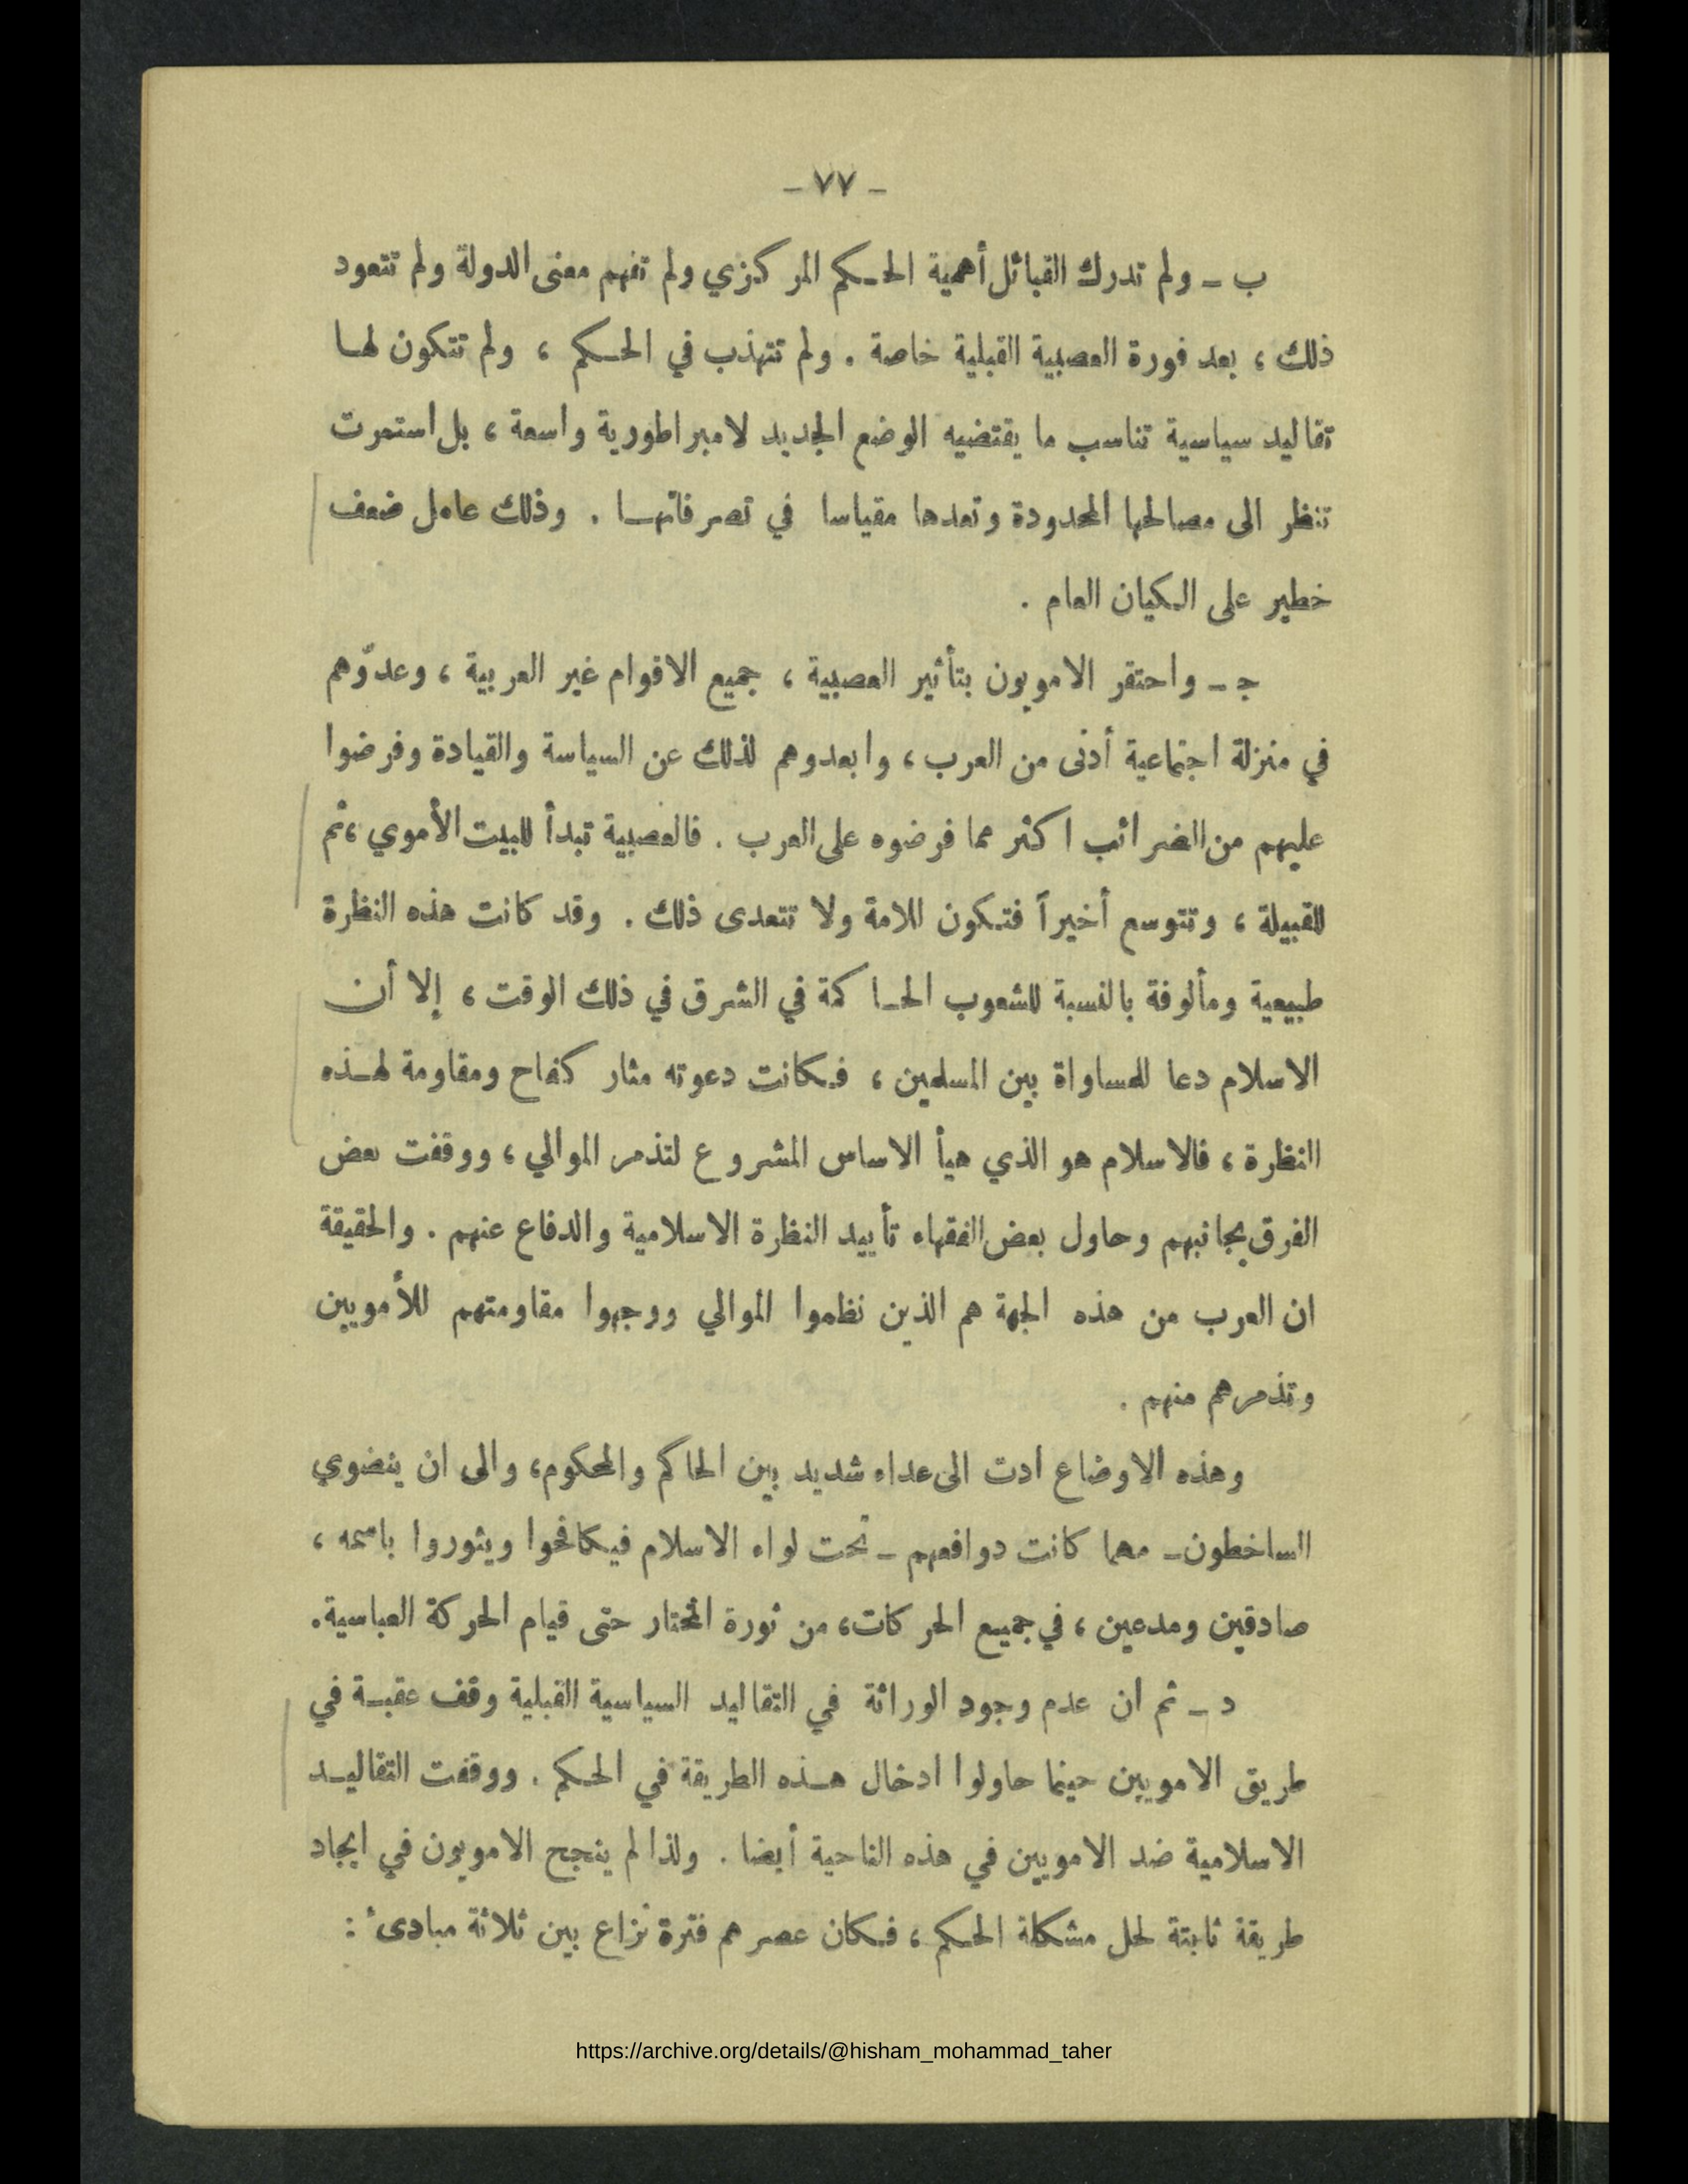 - ٧٧ -
ب - ولم تدرك القبائل أهمية الحكم المركزي ولم تفهم معنى الدولة ولم تتعود
ذلك ، بعد فورة العصبية القبلية خاصة . ولم تتهذب في الحكم ، ولم تتكون لها
تقاليد سياسية تناسب ما يقتضيه الوضع الجديد لامبراطورية واسعة ، بل استمرت
تنظر الى مصالحها المحدودة وتعدها مقياسا في تصرفاتها . وذلك عامل ضعف
خطير على الكيان العام .
جـ - واحتقر الامويون بتأثير العصبية ، جميع الاقوام غير العربية ، وعدّوهم
في منزلة اجتماعية أدنى من العرب ، وابعدوهم لذلك عن السياسة والقيادة وفرضوا
عليهم من الضرائب اكثر مما فرضوه على العرب . فالعصبية تبدأ للبيت الأموي ، ثم
للقبيلة ، وتتوسع أخيراً فتكون للامة ولا تتعدى ذلك . وقد كانت هذه النظرة
طبيعية ومألوفة بالنسبة للشعوب الحاكمة في الشرق في ذلك الوقت ، إلا أن
الاسلام دعا للمساواة بين المسلمين ، فكانت دعوته مثار كفاح ومقاومة لهذه
النظرة ، فالاسلام هو الذي هيأ الاساس المشروع لتذمر الموالي ، ووقفت بعض
الفرق بجانبهم وحاول بعض الفقهاء تأييد النظرة الاسلامية والدفاع عنهم . والحقيقة
ان العرب من هذه الجهة هم الذين نظموا الموالي ووجهوا مقاومتهم للأمويين
وتذمرهم منهم .
وهذه الاوضاع ادت الى عداء شديد بين الحاكم والمحكوم ، والى ان ينضوي
الساخطون - مهما كانت دوافعهم - تحت لواء الاسلام فيكافحوا ويثوروا باسمه ،
صادقين ومدعين ، في جميع الحركات ، من ثورة المختار حتى قيام الحركة العباسية .
د - ثم ان عدم وجود الوراثة في التقاليد السياسية القبلية وقف عقبة في
طريق الامويين حينما حاولوا ادخال هذه الطريقة في الحكم . ووقفت التقاليد
الاسلامية ضد الامويين في هذه الناحية أيضا . ولذا لم ينجح الامويون في ايجاد
طريقة ثابتة لحل مشكلة الحكم ، فكان عصرهم فترة نزاع بين ثلاثة مبادىء :
https://archive.org/details/@hisham_mohammad_taher